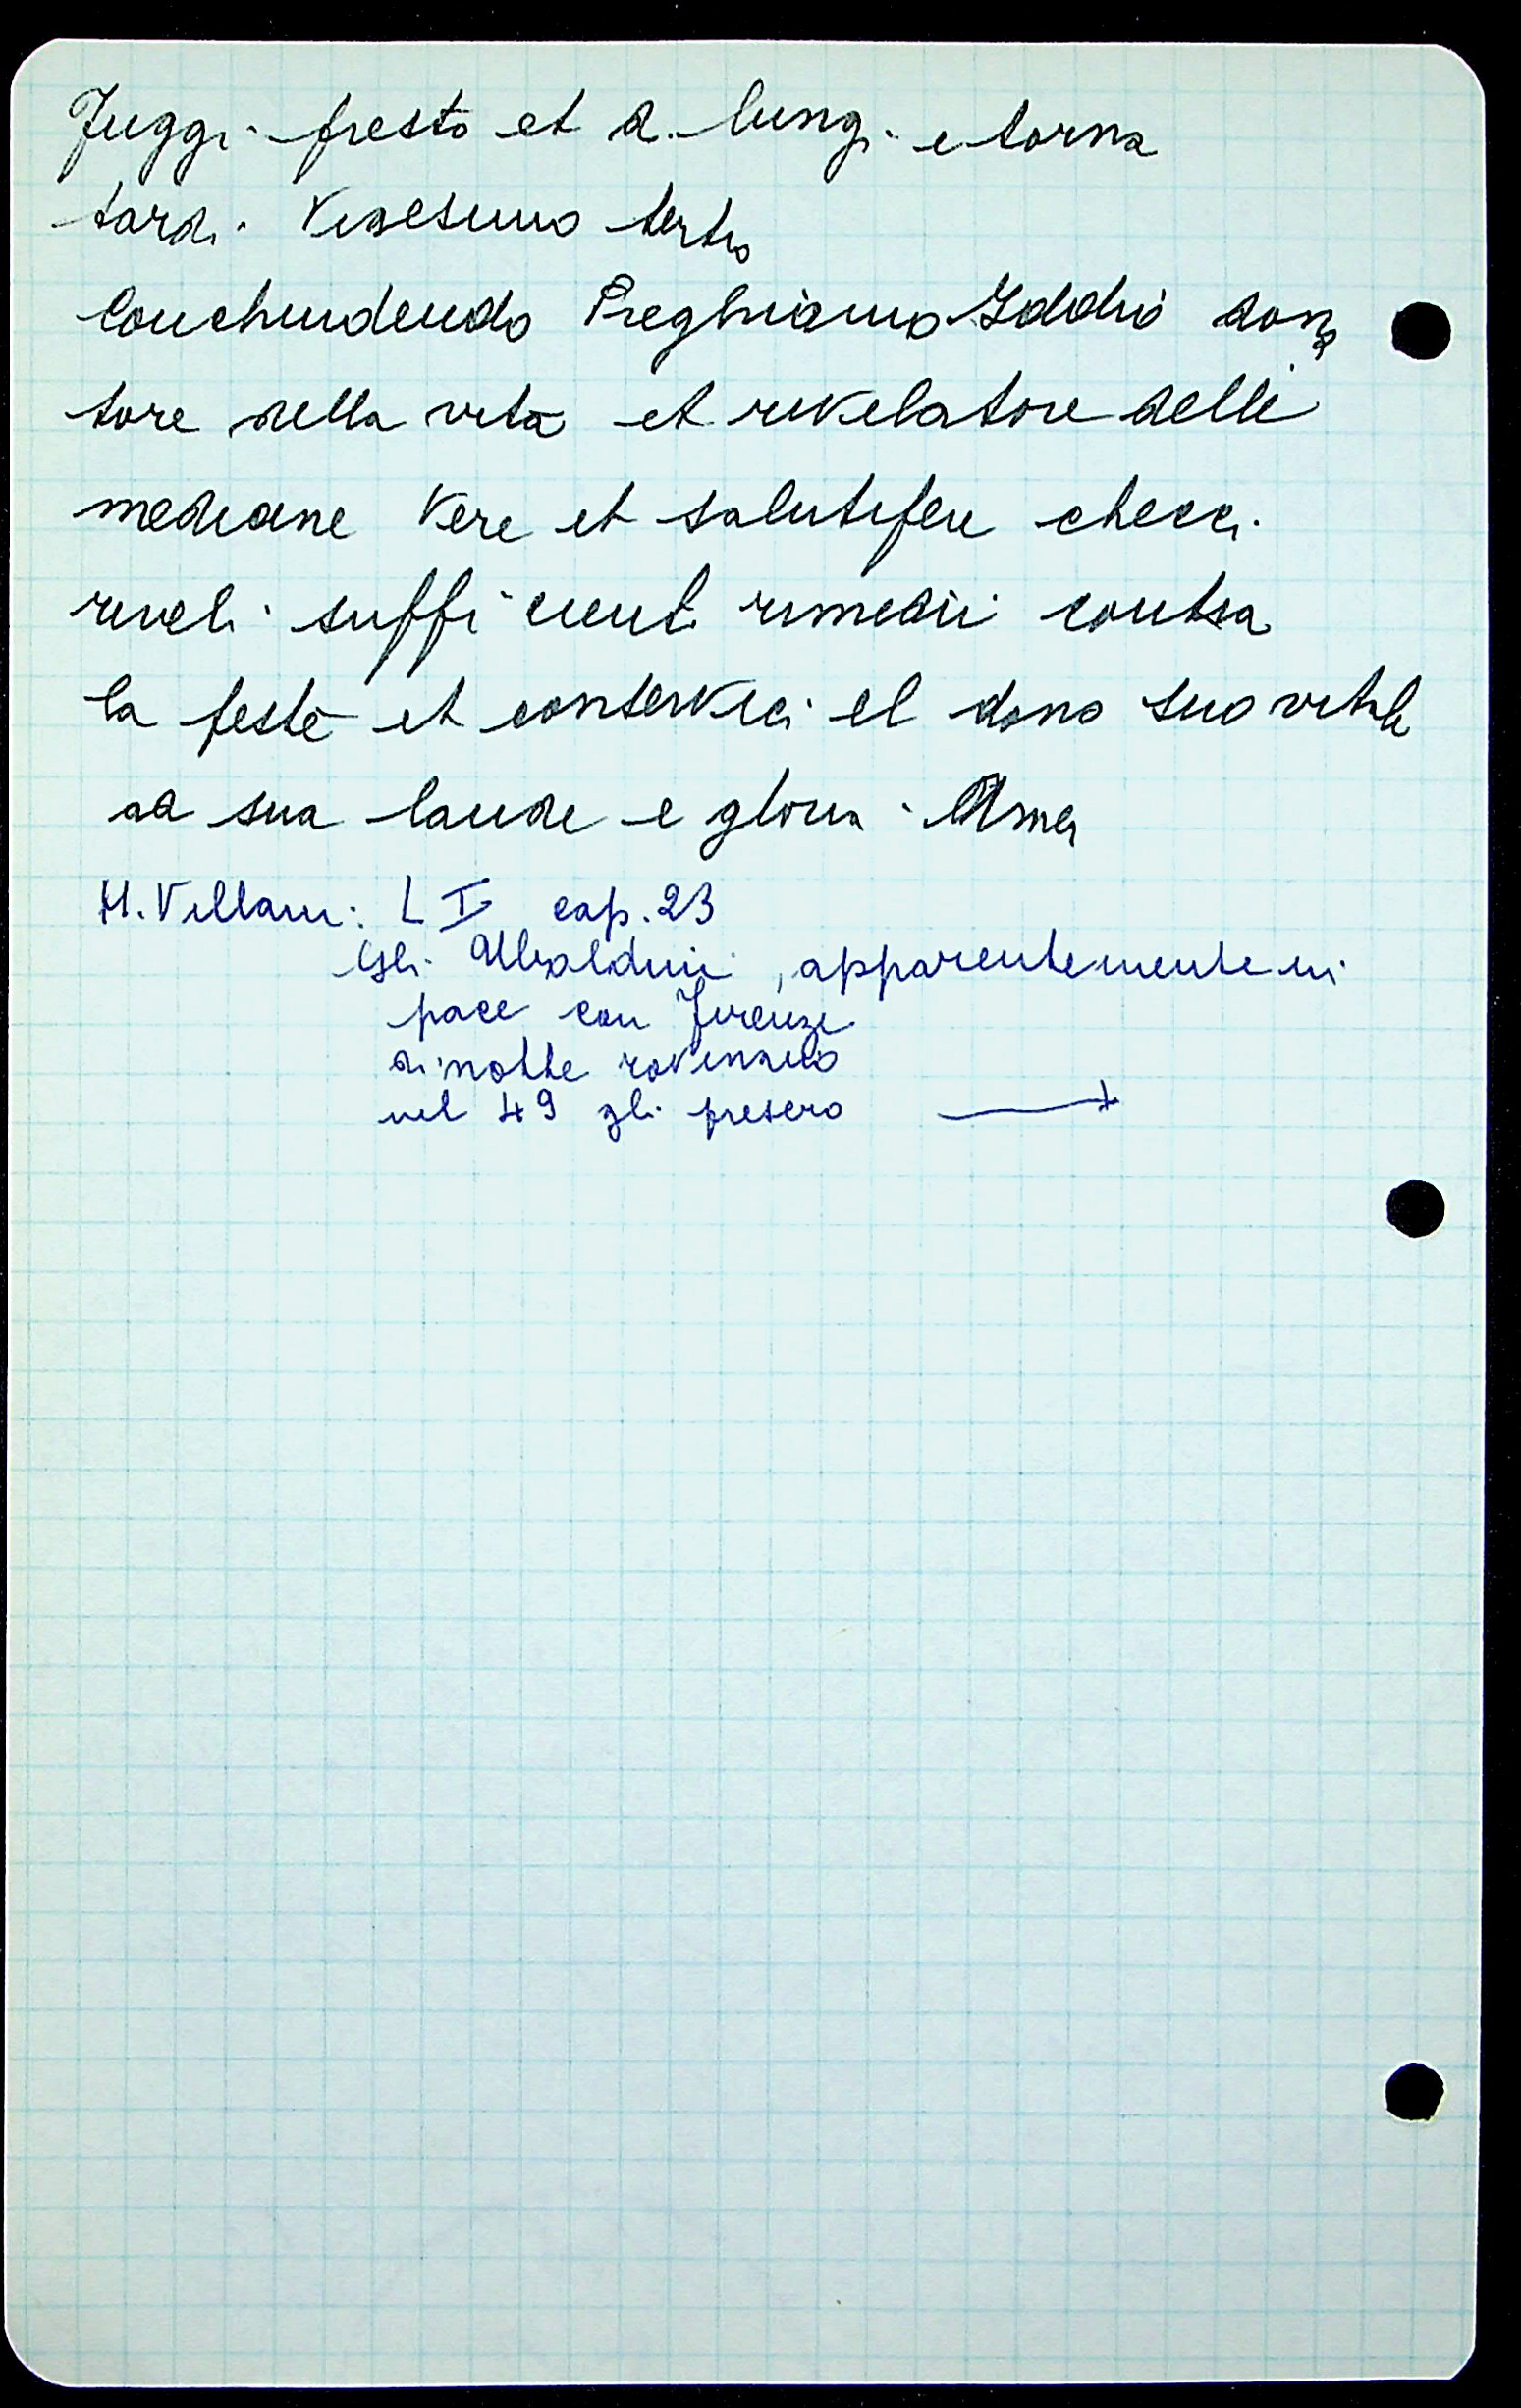 Fuggi presto et di lungi e torna
tardi. Vigesimo tertio
Conchiudendo Preghiamo Iddio dona
tore della vita et rivelatore delle
medicine vere et salutifere checci
riveli sufficienti rimedii contra
la peste et conservici el dono suo vitale
ad sua laude e gloria. Amen
M. Villani: L I cap. 23
Gli Ubaldini, apparentemente in
pace con Firenze
di notte
nel 49 gli presero